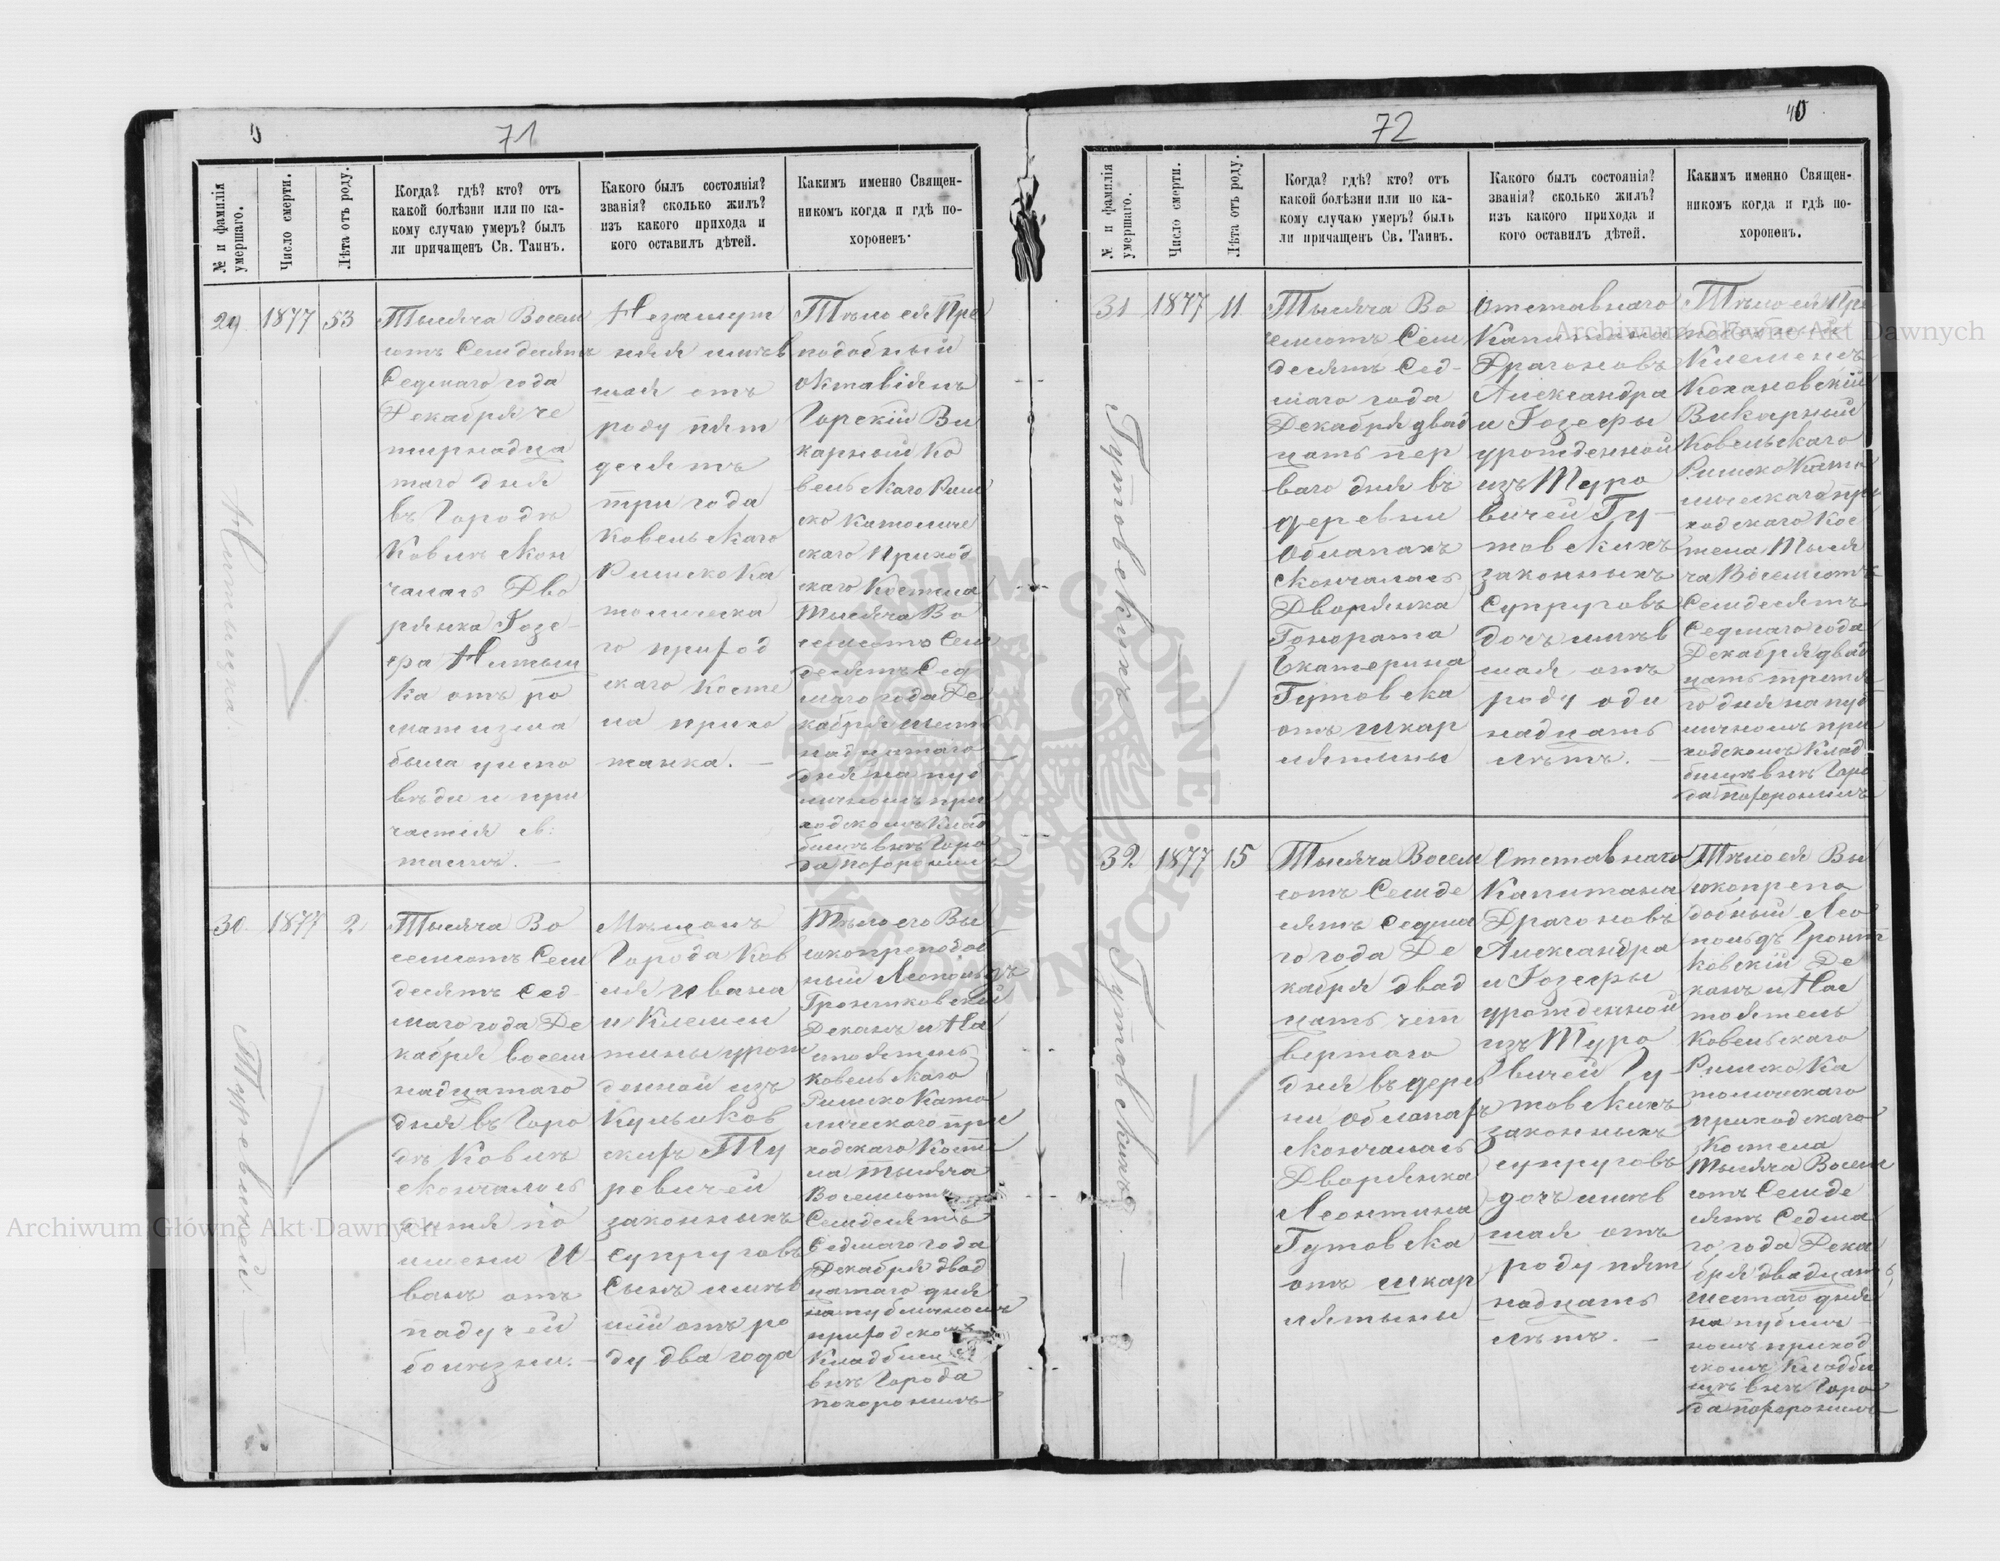 71
№ и фамилія умершаго.
Число смерти.
Лѣта отъ роду.
Когда? гдѣ? кто? отъ
какой болѣзни или по ка-
кому случаю умеръ? былъ
ли причащенъ Св. Таинъ.
Какого былъ состоянія?
званія? сколько жилъ?
изъ какого прихода и
кого оставилъ дѣтей.
Каким именно Священ-
никомъ когда и гдѣ по-
хороненъ.
29
1877
53
Тысяча Восем
сотъ Семдесятъ
Седмаго года
Декабря че
тирнадца
таго дня
въ Городѣ
Ковлѣ скон
чалась Дво
рянка Іозе-
фа
ка отъ ро
матизма
была у испо
вѣди и при
частія св:
таинъ. —
Незамуж
няя имѣв
шая отъ
роду пят
десятъ
три года
Ковельскаго
Римско Ка
толическа
го приход
скаго Косте
ла прихо
жанка. —
Тѣло ея Пре
подобный
Октавіянъ
Горскій Ви
карный Ко
вельскаго Рим
ско Католиче
скаго Приход
скаго Костела
Тысяча Во
семсотъ Сем
десятъ Сед
маго года Де
кабря шест
надцатаго
дня на пуб
личномъ при
ходскомъ Клад
бищѣ внѣ Горо
да похоронилъ
30
1877
2
Туревичей. —
Тысяча Во
семсотъ Сем
десятъ Сед-
маго года Де
кабря восем
надцатаго
дня въ Горо
дѣ Ковлѣ
скончалось
дитя по
имени И-
ванъ отъ
падучей
болѣзни. —
Мѣщанъ
Города Ков
ля Ивана
и Клемен
тины урож
денной изъ
Кульиков
скихъ Ту
ревичей
законныхъ
Супруговъ
Сынъ имѣв
шій отъ ро
ду два года
Тѣло его Вы
сокопреподоб
ный Леопольдъ
Гронтковскій
Деканъ и На
стоятель
Ковельскаго
Римско Като
лическаго при
ходскаго Косте
ла тысяча
Восемсотъ
Семдесятъ
Седмаго года
Декабря двад
цатаго дня
на публичномъ
приходскомъ
Кладбищ
внѣ Города
похоронилъ
72
40
№ и фамилія умершаго.
Число смерти.
Лѣта отъ роду.
Когда? гдѣ? кто? отъ
какой болѣзни или по ка-
кому случаю умеръ? былъ
ли причащенъ Св. Таинъ.
Какого былъ состоянія?
званія? сколько жилъ?
изъ какого прихода и
кого оставилъ дѣтей.
Каким именно Священ-
никомъ когда и гдѣ по-
хороненъ.
31
1877
11
Гутовскихъ
Тысяча Во
семсотъ Сем
десятъ Сед-
маго года
Декабря двад
цать пер
ваго дня въ
деревни
Облапахъ
скончалась
Дворянка
Гонората
Екатерина
Гутовска
отъ шкар
лятины
Отставнаго
Капитана
Драгоновъ
Александра
и Іозефы
урожденной
изъ Туро
вичей Гу-
товскихъ
законныхъ
Супруговъ
дочъ имѣв
шая отъ
роду оди
надцать
лѣтъ. —
Тѣло ея Пре
подобный
Клеменсъ
Кохановскій
Викарный
Ковельскаго
Римско Като
лическаго при
ходскаго Кос
тела Тыся
ча Восемсотъ
Семдесятъ
Седмаго года
Декабря двад
цать третья
го дня на пуб
личномъ при
ходскомъ Клад
бищѣ внѣ Горо
да похоронилъ
32
1877
15
Гутовскихъ. —
Тысяча Восем
сотъ Семде
сятъ Седма
го года Де
кабря двад
цать чет
вертаго
дня въ дерев
ни Облапахъ
скончалась
Дворянка
Леонтина
Гутовска
отъ шкар
лятыны
Отставнаго
Капитана
Драгоновъ
Александра
и Іозефы
урожденной
изъ Туро
вичей Гу-
товскихъ
законныхъ
супруговъ
дочъ имѣв
шая отъ
роду пят
надцать
лѣтъ. —
Тѣло ея Вы
сокопрепо
добный Лео
польдъ Гронт
ковскій Де
канъ и Нас
тоятель
Ковельскаго
Римско Ка
толическаго
приходскаго
Костела
Тысяча Восем
сотъ Семде
сятъ Седма
го года Дека
бря двадцать
шестаго дня
на публич-
номъ приход
скомъ Кладби
щѣ внѣ Горо
да похоронилъ
Archiwum Główne Akt Dawnych
Archiwum Główne Akt Dawnych
ARCHIWUM GŁÓWNE AKT DAWNYCH